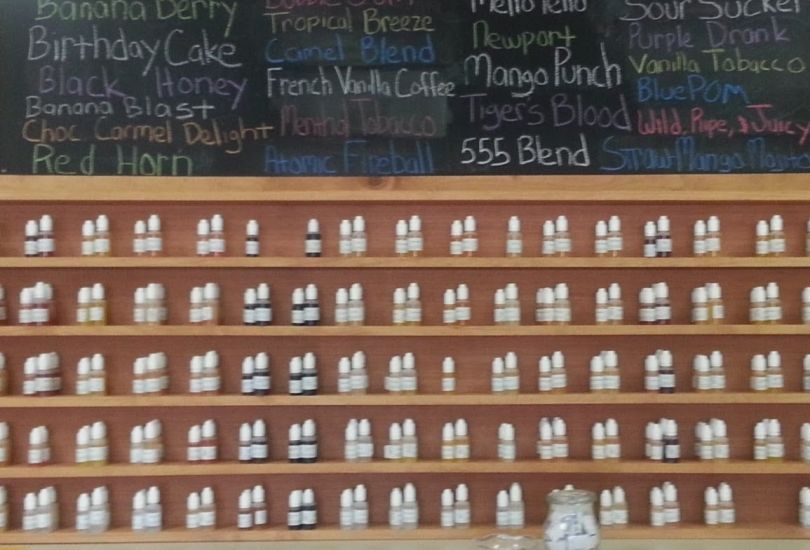 Banana Berry
Birthday Cake
Black Honey
Banana Blast
Choc Carmel Delight
Red Horn
Tropical Breeze
Camel Blend
French Vanilla Coffee
Menthol Tobacco
Atomic Fireball
Mello Yello
Newport
Mango Punch
Tiger's Blood
555 Blend
Sour Sucker
Purple Drank
Vanilla Tobacco
Blue POM
Wild, Ripe, & Juicy
Straw Mango